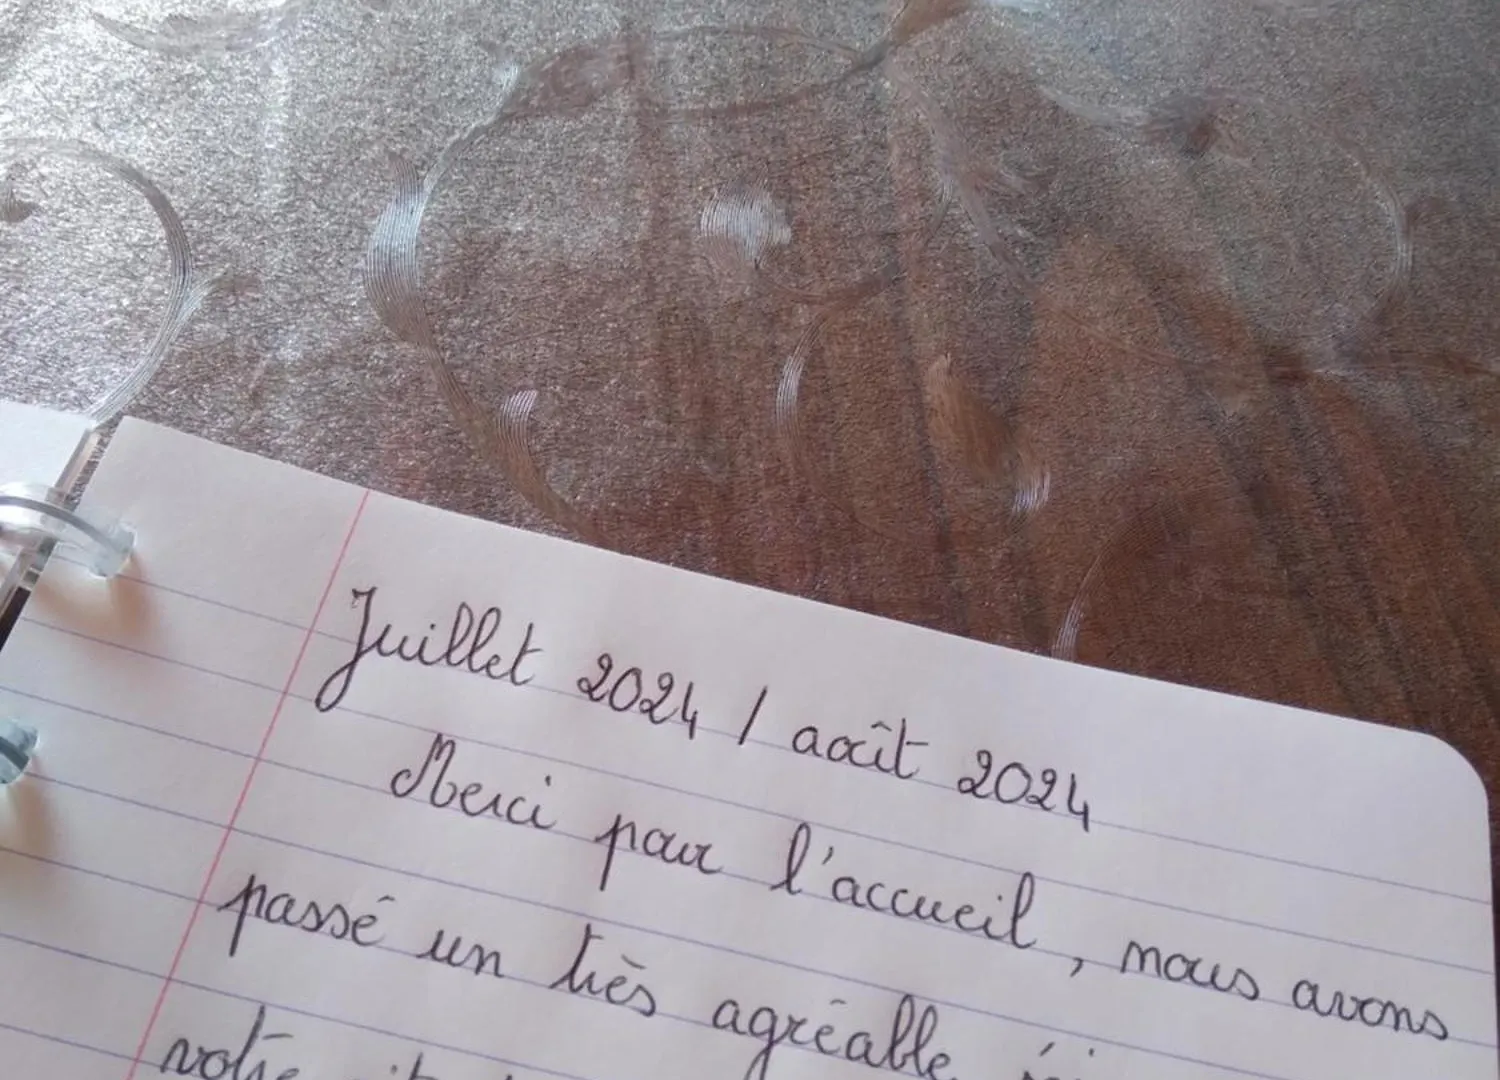 Juillet 2024 / août 2024
Merci pour l'accueil, nous avons
passé un très agréable
votre